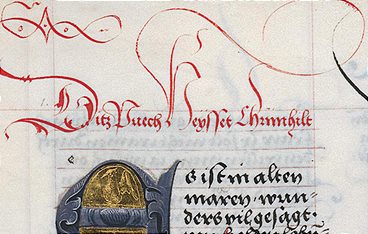 Ditz Puech Heysset Chrimhilt
Es ist in alten
maren . wun-
ders vil gesagt .